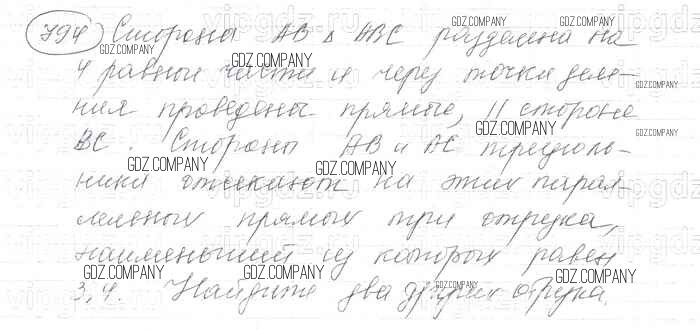 794 Сторона AB Δ ABC разделена на
4 равные части и через точки деле-
ния проведены прямые, || стороне
BC. Стороны AB и AC треуголь-
ника отсекают на этих парал-
лельных прямых три отрезка,
наименьший из которых равен
3,4. Найдите два других отрезка.
GDZ.COMPANY
GDZ.COMPANY
GDZ.COMPANY
GDZ.COMPANY
GDZ.COMPANY
GDZ.COMPANY
GDZ.COMPANY
GDZ.COMPANY
GDZ.COMPANY
GDZ.COMPANY
GDZ.COMPANY
GDZ.COMPANY
GDZ.COMPANY